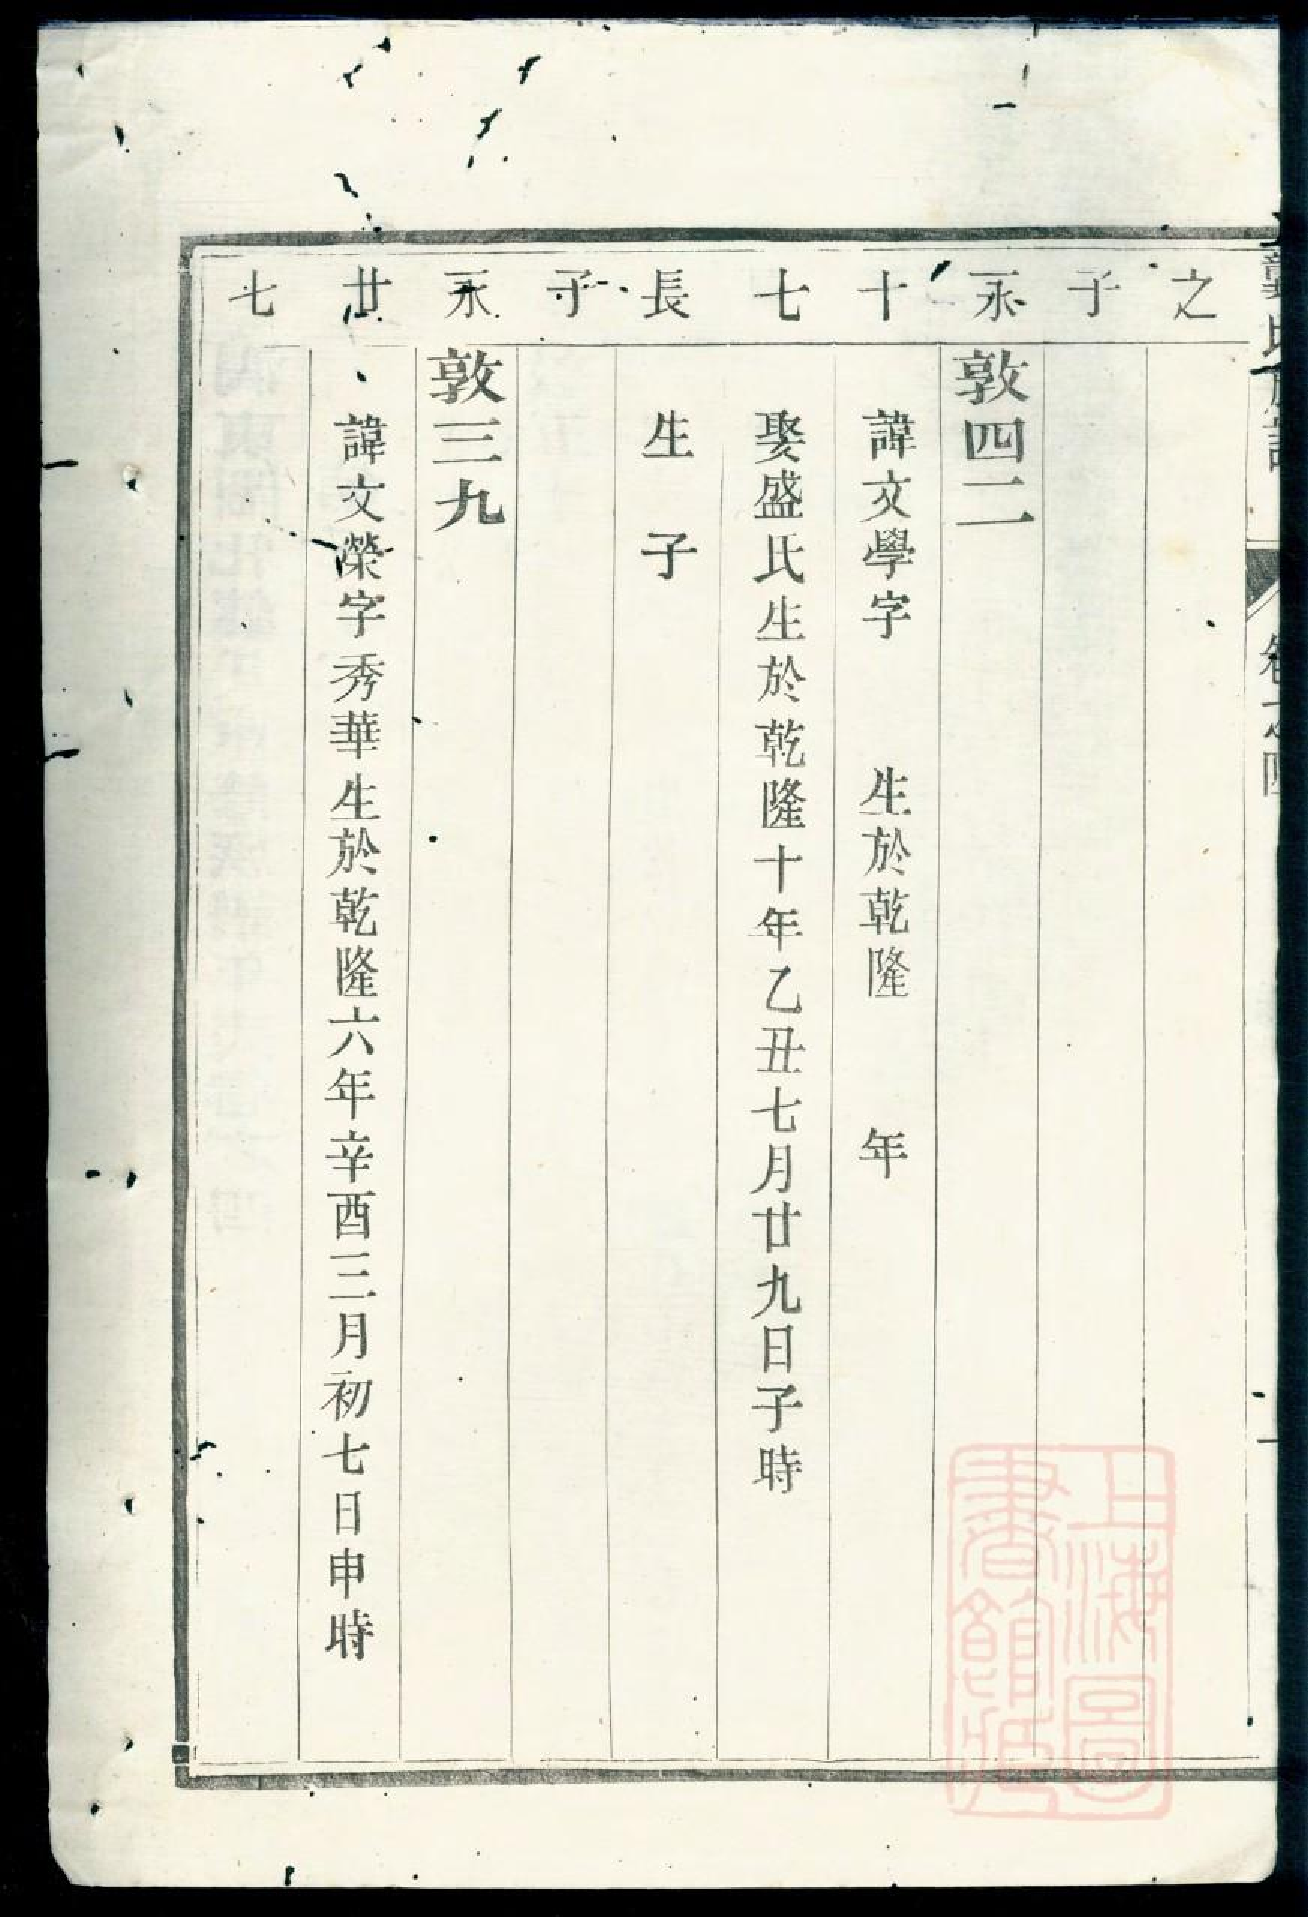 之子永十七長子永廿七
敦四二
諱文學字　生於乾隆　年
娶盛氏生於乾隆十年乙丑七月廿九日子時
生　子
敦三九
諱文榮字秀華生於乾隆六年辛酉三月初七日申時
上海圖
書館藏